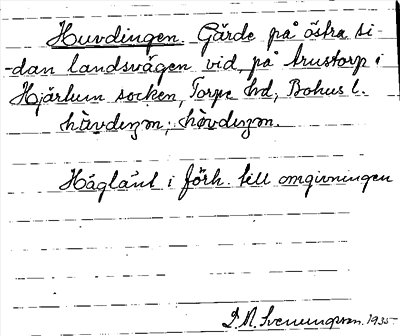 Huvdingen. Gärde på östra si-
-dan landsvägen vid, på Anstorp i
Hjärtum socken, Torpe hd, Bohus l.
hùvdeŋən; hòvdeŋən.
Högläut i förh. till omgivningen
D. A. Svenungsson. 1935